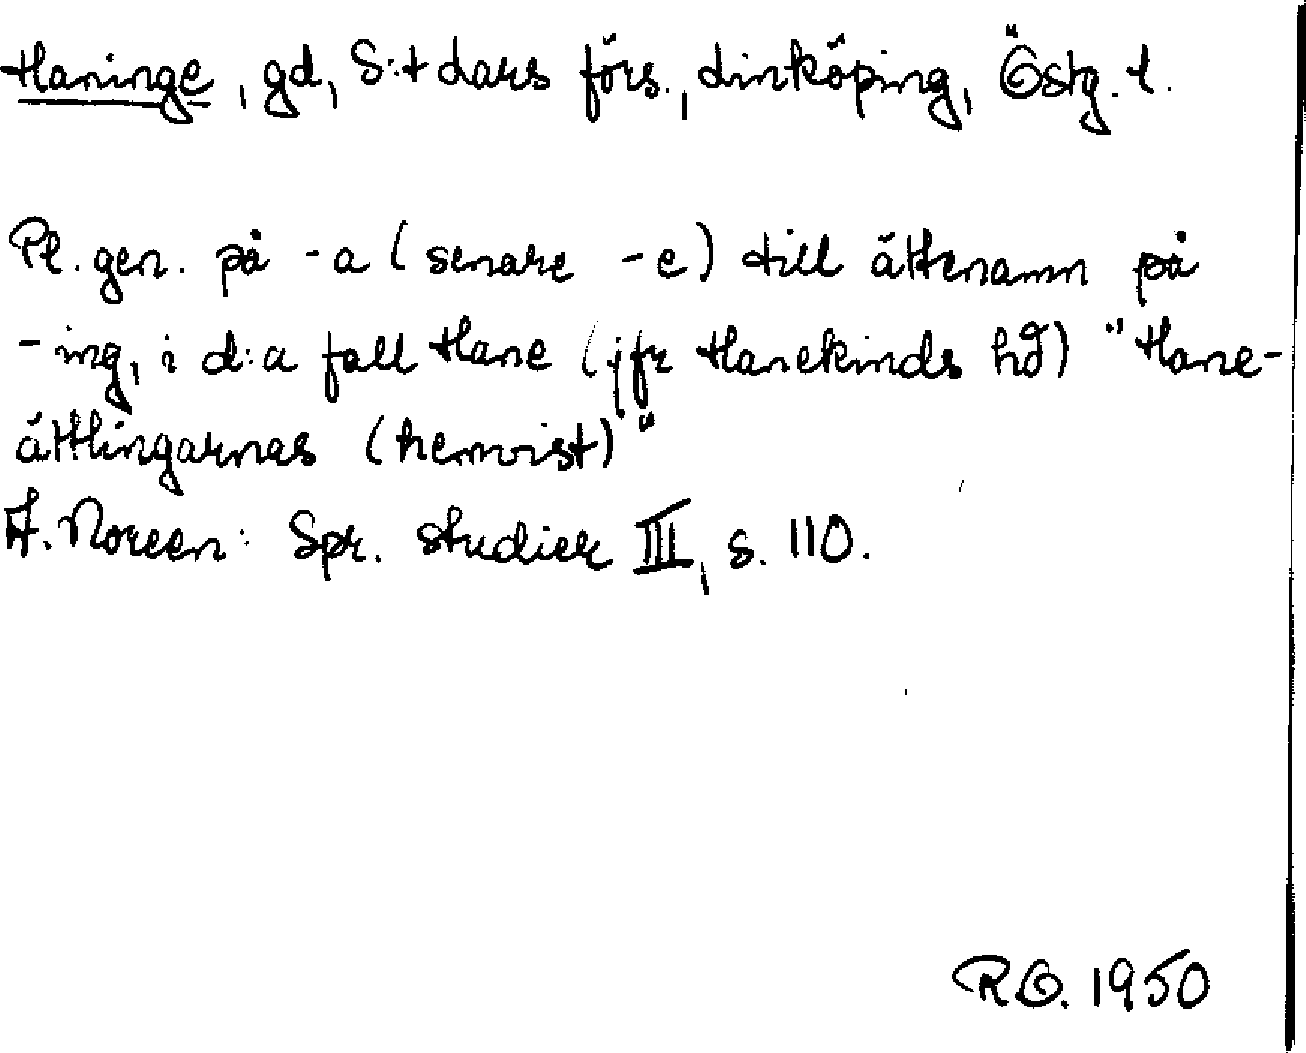 Haninge, gd, S:t Lars förs., Linköping, Östg. l.
Pl. gen. på -a (senare -e) till ättenamn på
-ing, i d:a fall Hane (jfr Hanekinds hd) "Hane-
ättlingarnas (hemvist)"
A. Noreen: Spr. studier III, s. 110.
RO. 1950